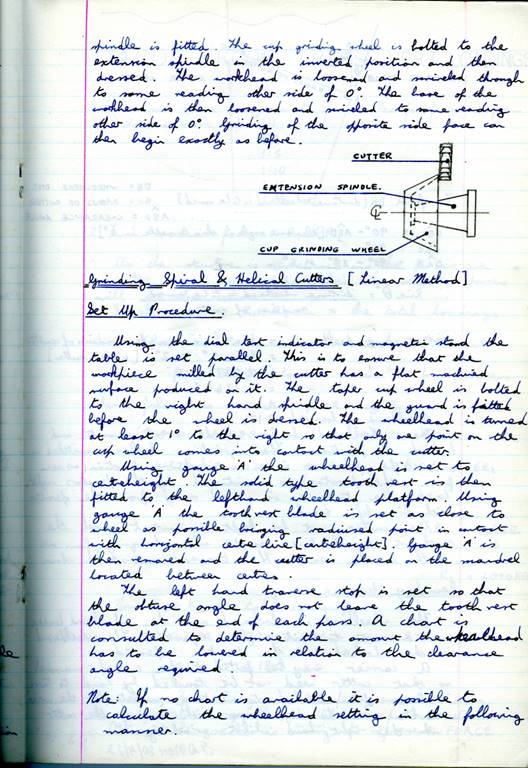 spindle is fitted. The cup grinding wheel is bolted to the
extension spindle in the inverted position and then
dressed. The workhead is loosened and swivelled through
to same reading other side of 0°. The base of the
workhead is then loosened and swivelled to same reading
other side of 0°. Grinding of the opposite side face can
then begin exactly as before.
CUTTER
EXTENSION SPINDLE.
CUP GRINDING WHEEL
Grinding Spiral & Helical Cutters [Linear Method]
Set Up Procedure.
Using the dial test indicator and magnetic stand the
table is set parallel. This is to ensure that the
workpiece milled by the cutter has a flat machined
surface produced on it. The taper cup wheel is bolted
to the right hand spindle and the guard is fitted
before the wheel is dressed. The wheelhead is turned
at least 1° to the right so that only one point on the
cup wheel comes into contact with the cutter.
Using gauge 'A' the wheelhead is set to
centreheight. The solid type tooth rest is then
fitted to the lefthand wheelhead platform. Using
gauge 'A' the toothrest blade is set as close to
wheel as possible bringing radiused point in contact
with horizontal centre line [centreheight]. Gauge 'A' is
then removed and the cutter is placed on the mandrel
located between centres.
The left hand traverse stop is set so that
the obtuse angle does not leave the tooth rest
blade at the end of each pass. A chart is
consulted to determine the amount the wheelhead
has to be lowered in relation to the clearance
angle required.
Note: If no chart is available it is possible to
calculate the wheelhead setting in the following
manner.